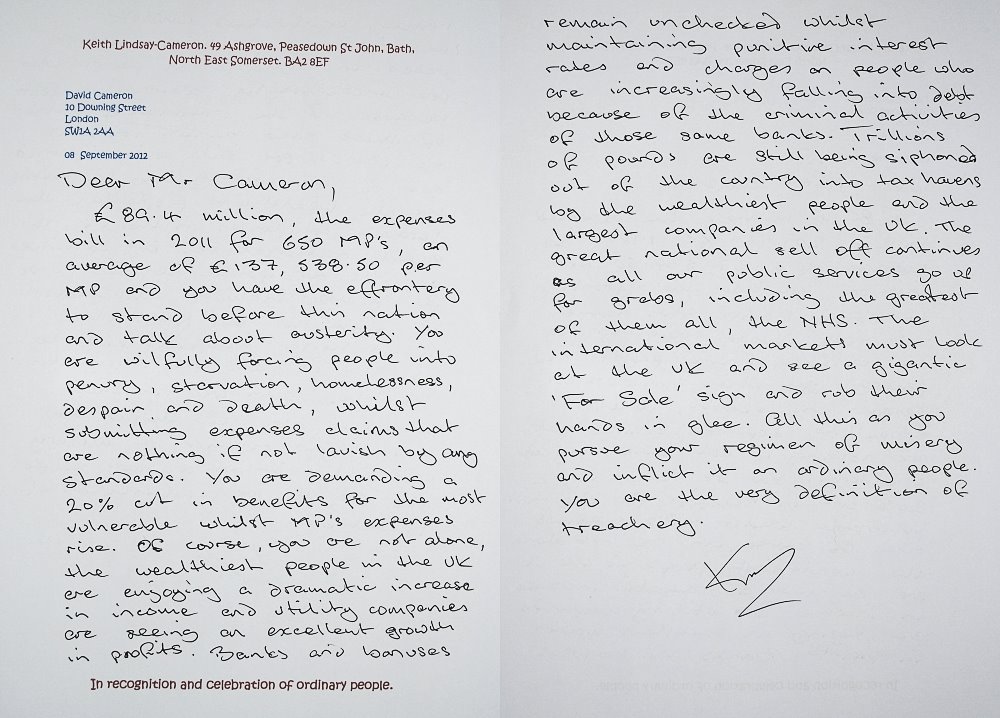 Keith Lindsay-Cameron. 49 Ashgrove, Peasedown St John, Bath,
North East Somerset. BA2 8EF
David Cameron
10 Downing Street
London
SW1A 2AA
08 September 2012
Dear Mr Cameron,
£89.4 million, the expenses
bill in 2011 for 650 MP's, an
average of £137, 538.50 per
MP and you have the effrontery
to stand before this nation
and talk about austerity. You
are wilfully forcing people into
penury, starvation, homelessness,
despair and death, whilst
submitting expenses claims that
are nothing if not lavish by any
standards. You are demanding a
20% cut in benefits for the most
vulnerable whilst MP's expenses
rise. Of course, you are not alone,
the wealthiest people in the UK
are enjoying a dramatic increase
in income and utility companies
are seeing an excellent growth
in profits. Banks and bonuses
In recognition and celebration of ordinary people.
remain unchecked whilst
maintaining punitive interest
rates and charges on people who
are increasingly falling into debt
because of the criminal activities
of those same banks. Trillions
of pounds are still being siphoned
out of the country into tax havens
by the wealthiest people and the
largest companies in the UK. The
great national sell off continues
as all our public services go up
for grabs, including the greatest
of them all, the NHS. The
international markets must look
at the UK and see a gigantic
'For Sale' sign and rub their
hands in glee. All this as you
pursue your regimen of misery
and inflict it on ordinary people.
You are the very definition of
treachery.